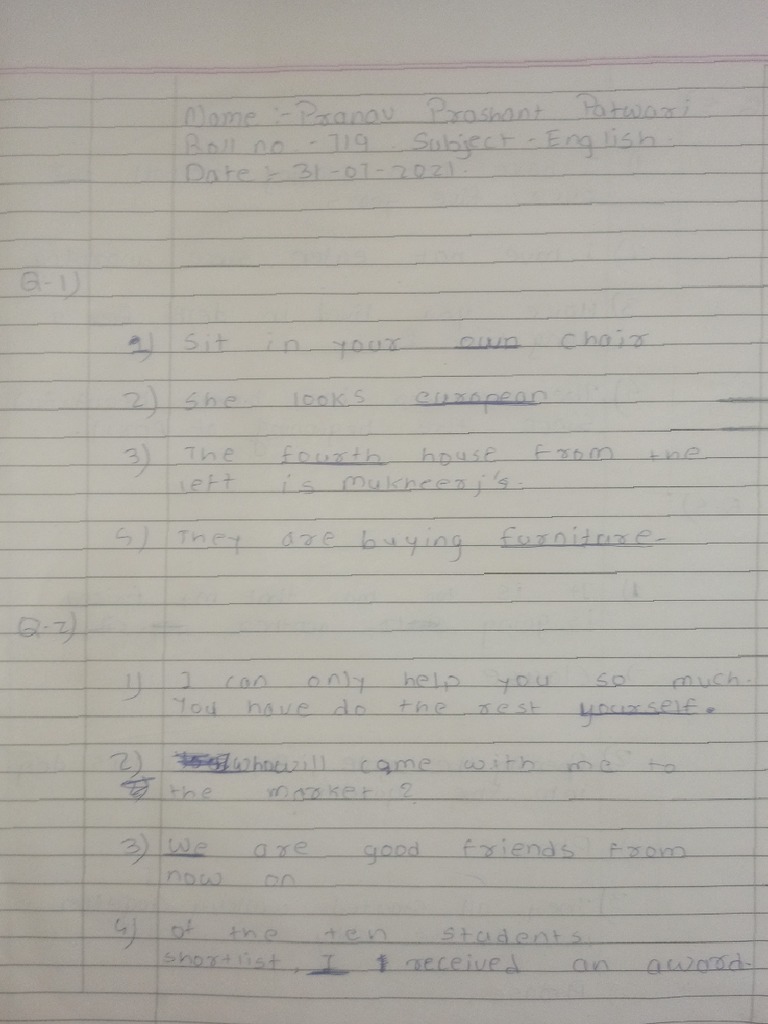 Name :- Pranav Prashant Patwari
Roll no - 719 Subject - English
Date :- 31-07-2021.
Q-1)
1) Sit in your own chair
2) She looks european
3) The fourth house from the
left is mukheerj's.
5) They are buying furniture-
Q-2)
1) I can only help you so much.
You have do the rest yourself.
2) who will came with me to
the market ?
3) We are good friends from
now on
4) of the ten students
shortlist, I received an award.